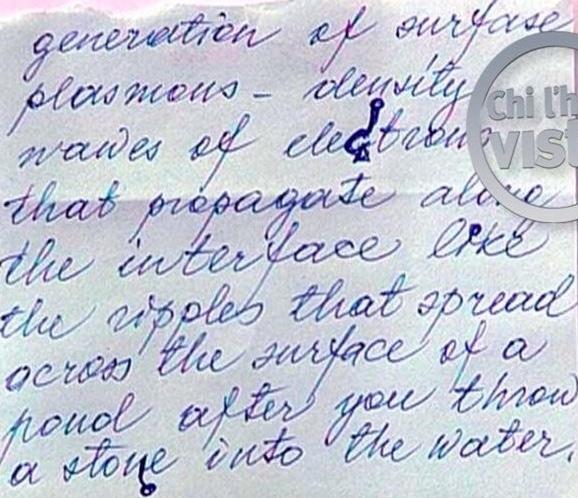 generation of surfase
plasmons – density
wawes of electrons
that propagate along
the interface like
the ripples that spread
across the surface of a
pond after you throw
a stone into the water.
Chi l'h
VIST